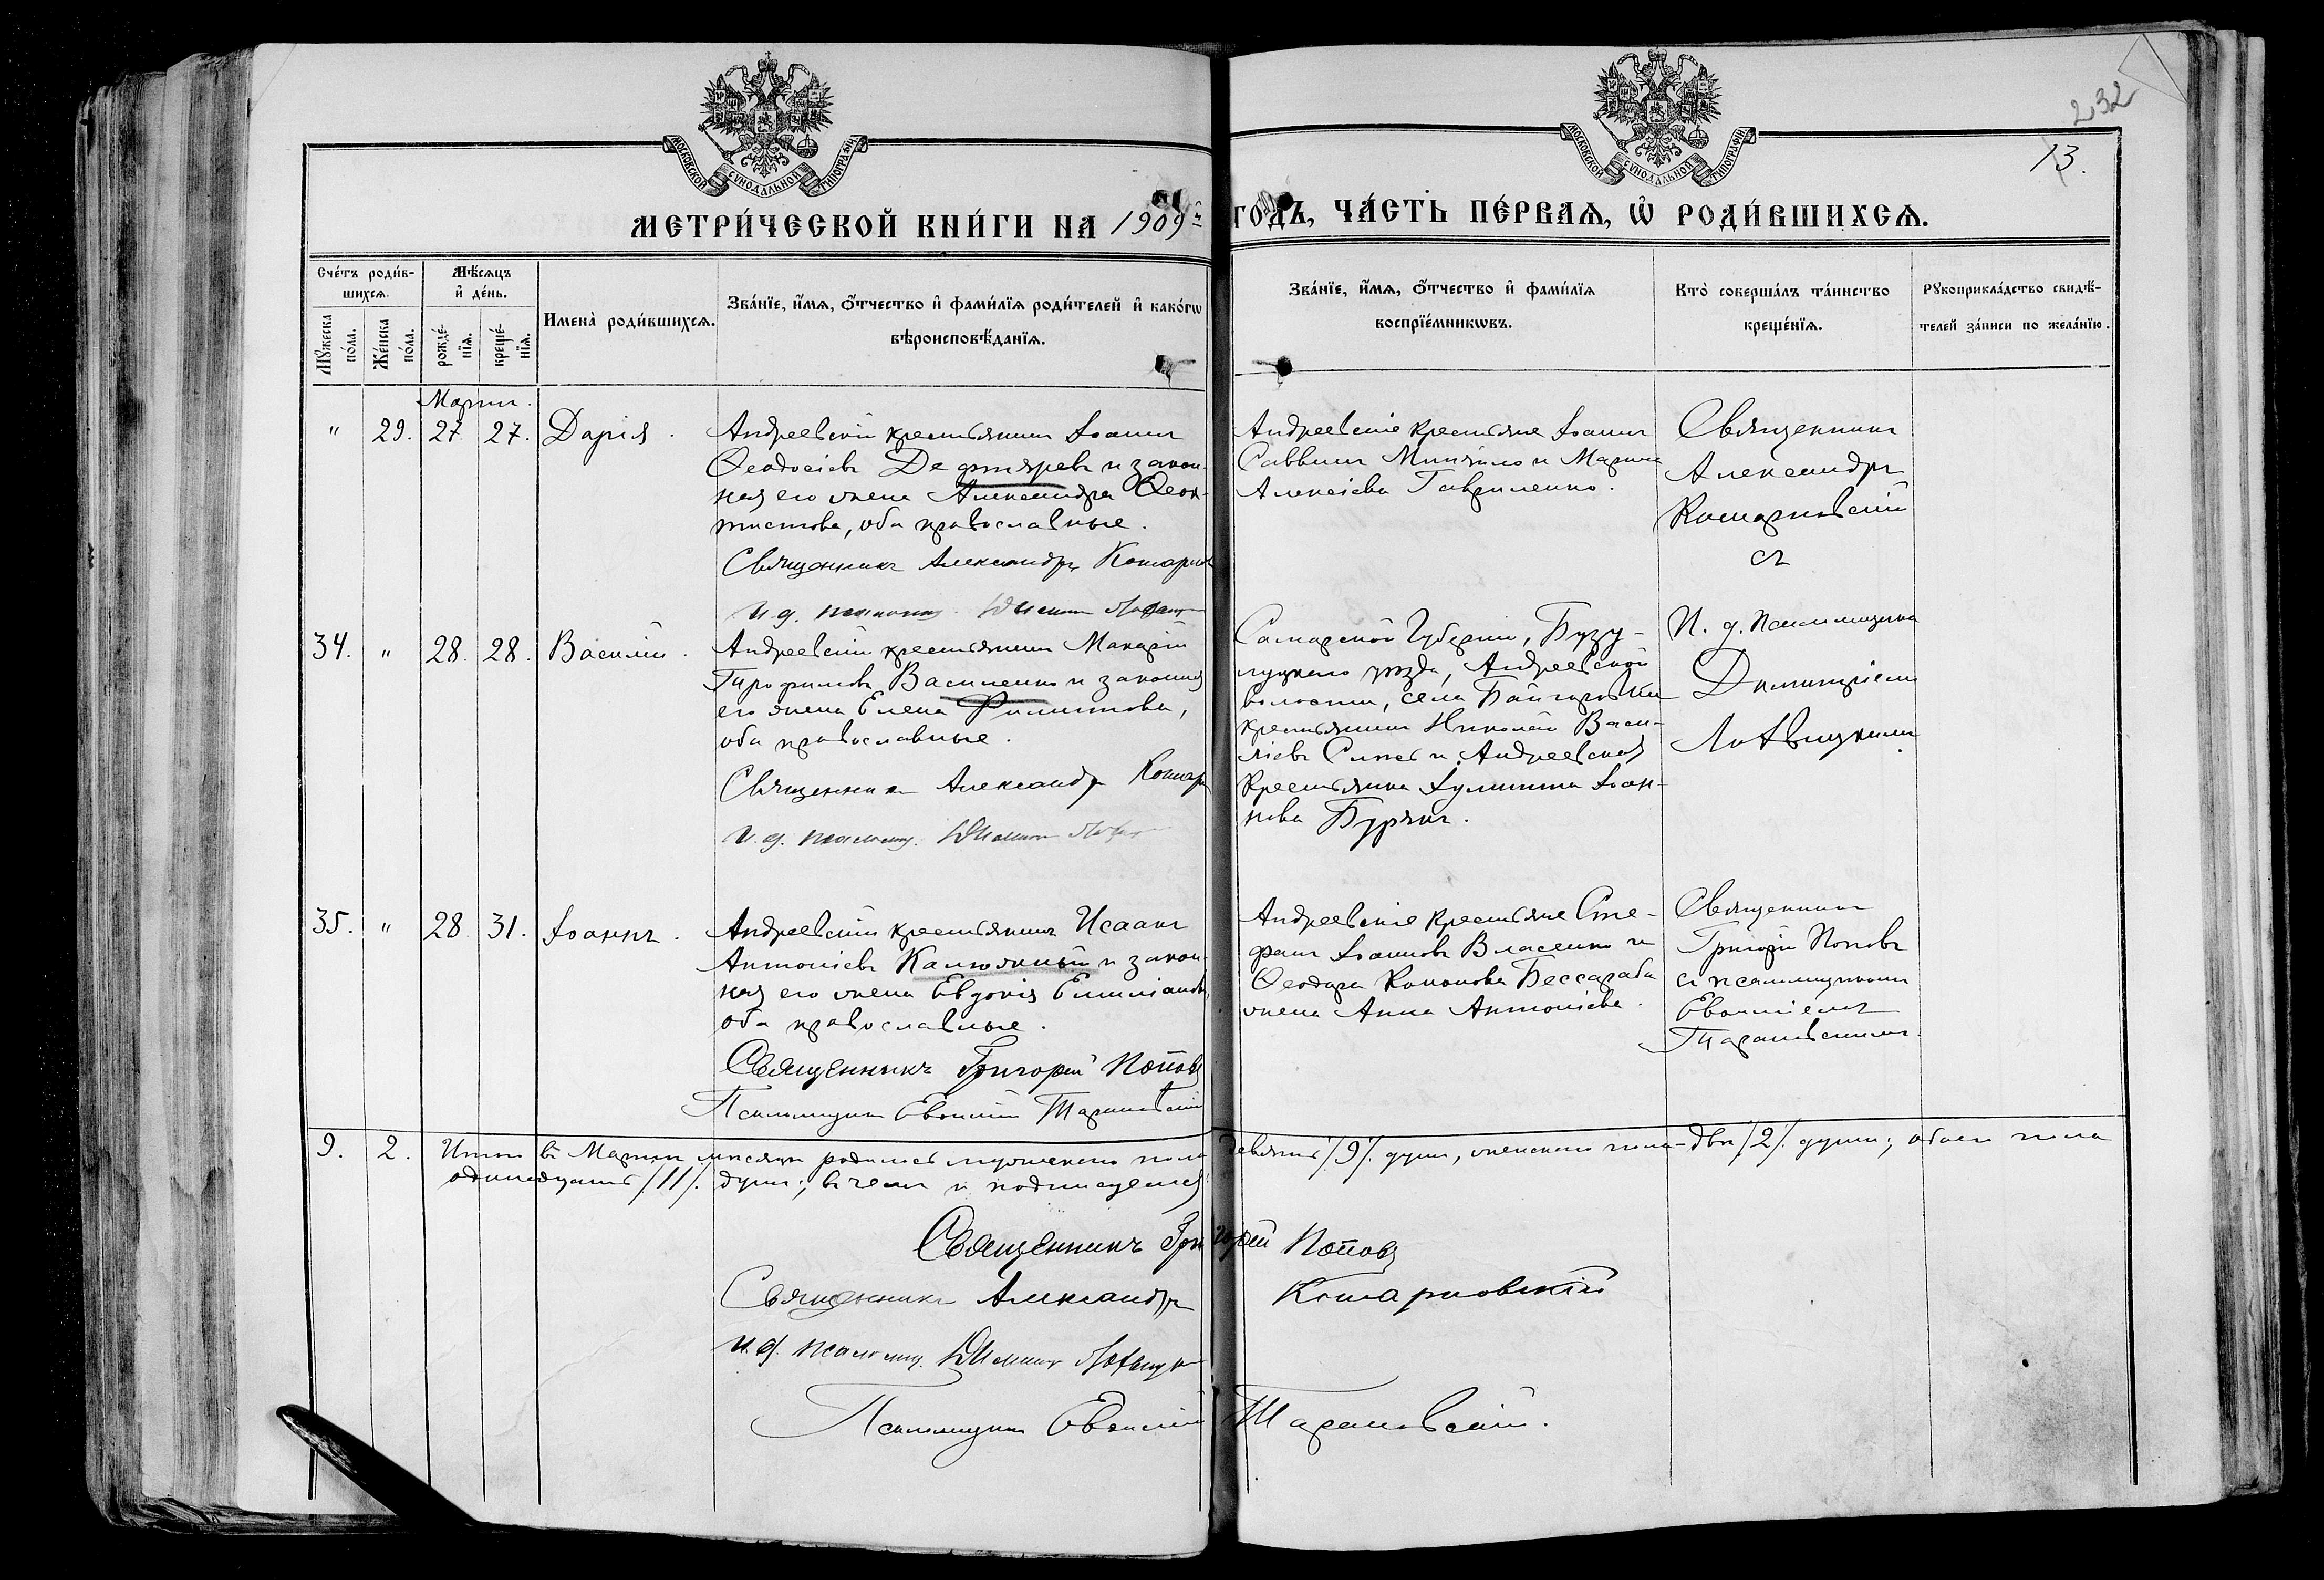 232
13.
МОСКОВСКОЙ СѴНОДАЛЬНОЙ ТИПОГРАФІИ
МОСКОВСКОЙ СѴНОДАЛЬНОЙ ТИПОГРАФІИ
МЕТРИ́ЧЕСКОЙ КНИ́ГИ НА 1909й ГОДЪ, ЧА́СТЬ ПЕ́РВАЯ, Ѿ РОДИ́ВШИХСЯ.
Сче́тъ роди́в-
шихся.
Мѣ́сяцъ
и҆ де́нь.
Мꙋ́жеска
по́ла.
Же́нска
по́ла.
рожде́-
нїя.
креще́-
нїя.
Имена̀ роди́вшихся.
Зва́нїе, и҆́мя, ѻ҆́тчество и҆ фами́лїя роди́телей и҆ како́гѡ
вѣроисповѣ́данїя.
Зва́нїе, и҆́мя, ѻ҆́тчество и҆ фами́лїя
воспрїе́мникѡвъ.
Кто̀ соверша́лъ та́инство
креще́нїя.
Рꙋкоприкла́дство свидѣ́-
телей за́писи по жела́нїю.
Мартъ.
" 29. 27. 27. Дарія.
Андреевскій крестьянинъ Іоаннъ
Ѳеодосіевъ Дегтяревъ и закон-
ная его жена Александра Ѳеок-
тистова, оба православные.
Священникъ Александръ
и. д. псаломщ.
Андреевскіе крестьяне Іоаннъ
Саввинъ и Марина
Алексіева Гавриленко.
Священникъ
Александръ
Комарновскій
съ
34. " 28. 28. Василій.
Андреевскій крестьянинъ Макарій
Трофимовъ Василенко и законная
его жена Елена Филиппова,
оба православные.
Священникъ Александръ
и. д. псаломщ.
Самарской Губерніи, Бузу-
лукскаго уѣзда, Андреевской
волости, села
крестьянинъ Николай Васи-
ліевъ и Андреевская
крестьянка Іулитта Іоан-
нова Бурякъ.
И. д. псаломщика
Димитріемъ
Литвицкимъ
35. " 28. 31. Іоаннъ.
Андреевскій крестьянинъ Исаакъ
Антоніевъ и закон-
ная его жена Евдокія Емиліанова,
оба православные.
Священникъ Григорій Поповъ
Псаломщикъ Евѳимій Тарановскій
Андреевскіе крестьяне Сте-
фанъ Іоанновъ Власенко и
Ѳеодора Кононова Бессараба
жена Анна Антоніева.
Священникъ
Григорій Поповъ
съ псаломщикомъ
Евѳиміемъ
Тарановскимъ.
9. 2. Итого въ Мартѣ мѣсяцѣ родилось мужескаго пола девять /9/ душъ, женскаго пола - двѣ /2/ души; обоего пола
одиннадцать /11/. душъ; въ чемъ и подписуемся:
Священникъ Григорій Поповъ
Священникъ Александръ Комарновскій
и. д. псаломщ.
Псаломщикъ Евѳимій Тарановскій.